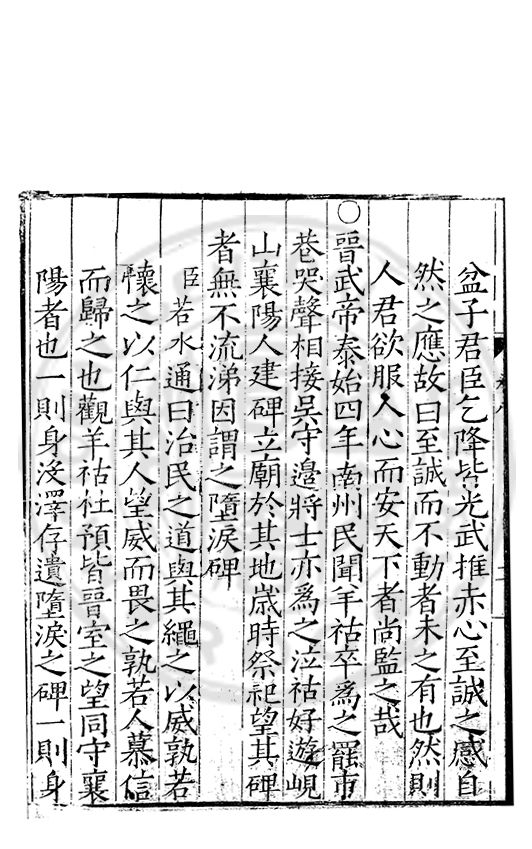 盆子君臣乞降皆光武推赤心至誠之感自
然之應故曰至誠而不動者未之有也然則
人君欲服人心而安天下者尚監之哉
○晉武帝泰始四年南州民聞羊祜卒為之罷市
巷哭聲相接吳守邊將士亦為之泣祜好遊峴
山襄陽人建碑立廟於其地歲時祭祀望其碑
者無不流涕因謂之墮淚碑
臣若水通曰治民之道與其繩之以威孰若
懷之以仁與其人望威而畏之孰若人慕信
而歸之也觀羊祜杜預皆晉室之望同守襄
陽者也一則身沒澤存遺墮淚之碑一則身